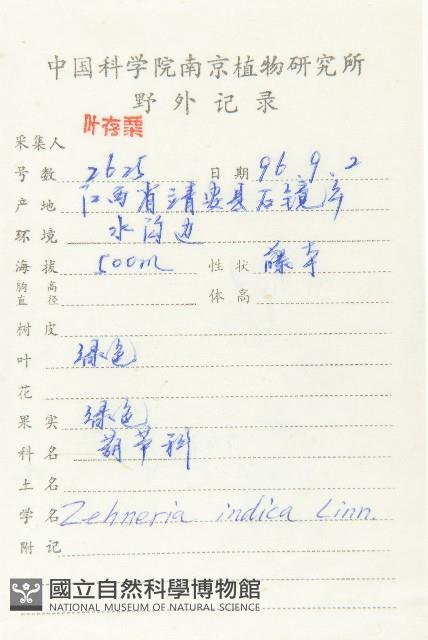 中国科学院南京植物研究所
野外记录
叶存粟
采集人
号数 2625 日期 96.9.2
产地 江西省靖安县石镜寺
环境 水沟边
海拔 500m 性状 藤本
胸高直径 体高
树皮
叶 绿色
花
果实 绿色
科名 葫芦科
土名
学名 Zehneria indica Linn.
附记
國立自然科學博物館
NATIONAL MUSEUM OF NATURAL SCIENCE